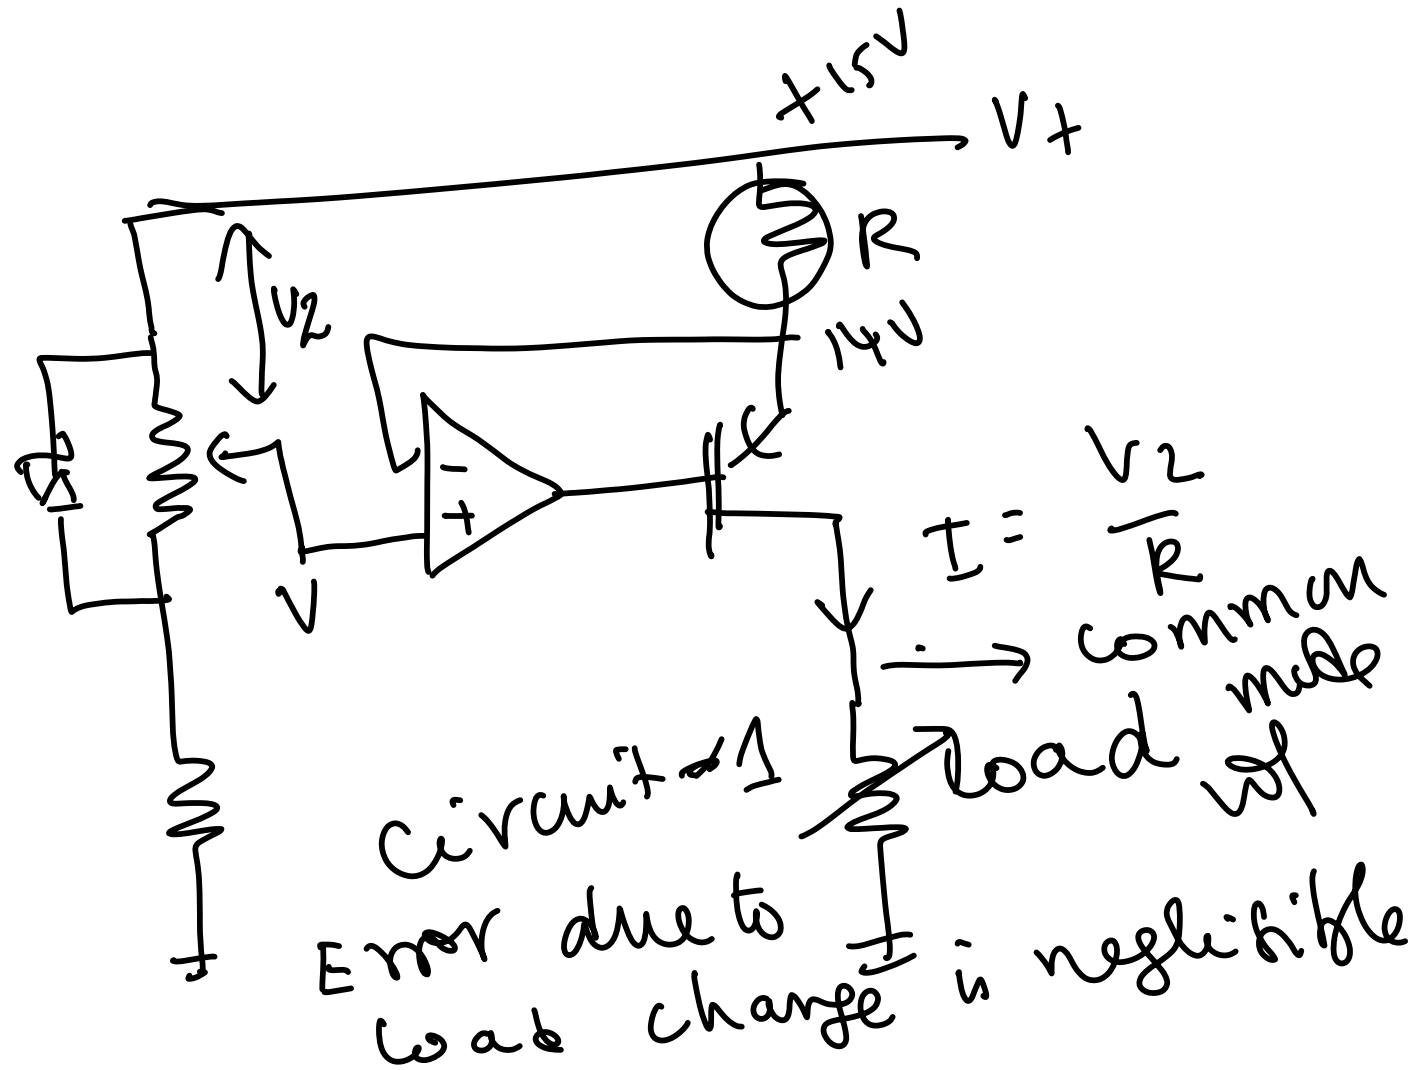 +15V
V+
V2
R
14V
-
+
V
I = V2/R
common
mode
load
vol
Circuit-1
Error due to
load change is negligible